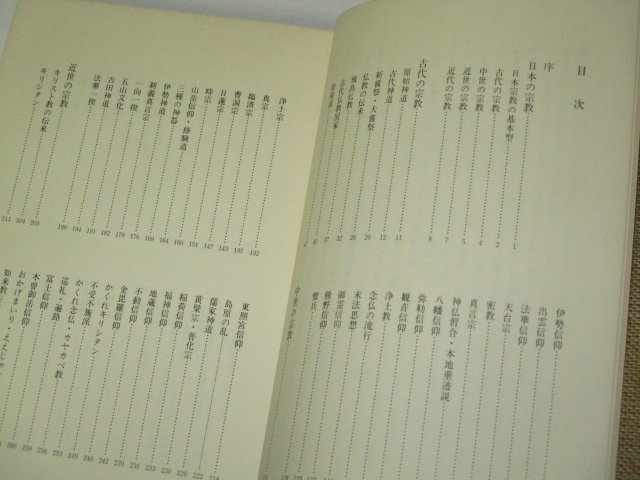 目次
序
日本の宗教
日本宗教の基本型 1
古代の宗教 2
中世の宗教 4
近世の宗教 5
近代の宗教 7
古代の宗教 8
原始神道 11
古代神道 12
新嘗祭・大嘗祭 20
仏教の伝来 26
飛鳥仏教 32
古代仏教国家 37
伊勢信仰
出雲信仰
法華信仰
天台宗
密教
真言宗
神仏習合・本地垂迹説
八幡信仰
弥勒信仰
観音信仰
浄土教
念仏の流行
末法思想
御霊信仰
熊野信仰
僧兵
中世の宗教
浄土宗 132
真宗 137
臨済宗 143
曹洞宗 147
日蓮宗 151
時宗
山岳信仰・修験道 160
三種の神器 164
伊勢神道
新義真言宗 169
一向一揆 176
五山文化 179
吉田神道 182
法華一揆 191
近世の宗教 199
キリスト教の伝来 201
キリシタン 204
東照宮信仰 218
島原の乱 219
儒家神道 222
黄檗宗・普化宗 226
稲荷信仰 228
福神信仰 230
地蔵信仰 233
不動信仰 236
金毘羅信仰 239
かくれキリシタン 242
不受不施派 246
かくれ念仏・カヤカベ教 249
巡礼・遍路 253
富士信仰 256
木曽御岳信仰 260
おかげまいり・ええじゃ 266
如来教 268